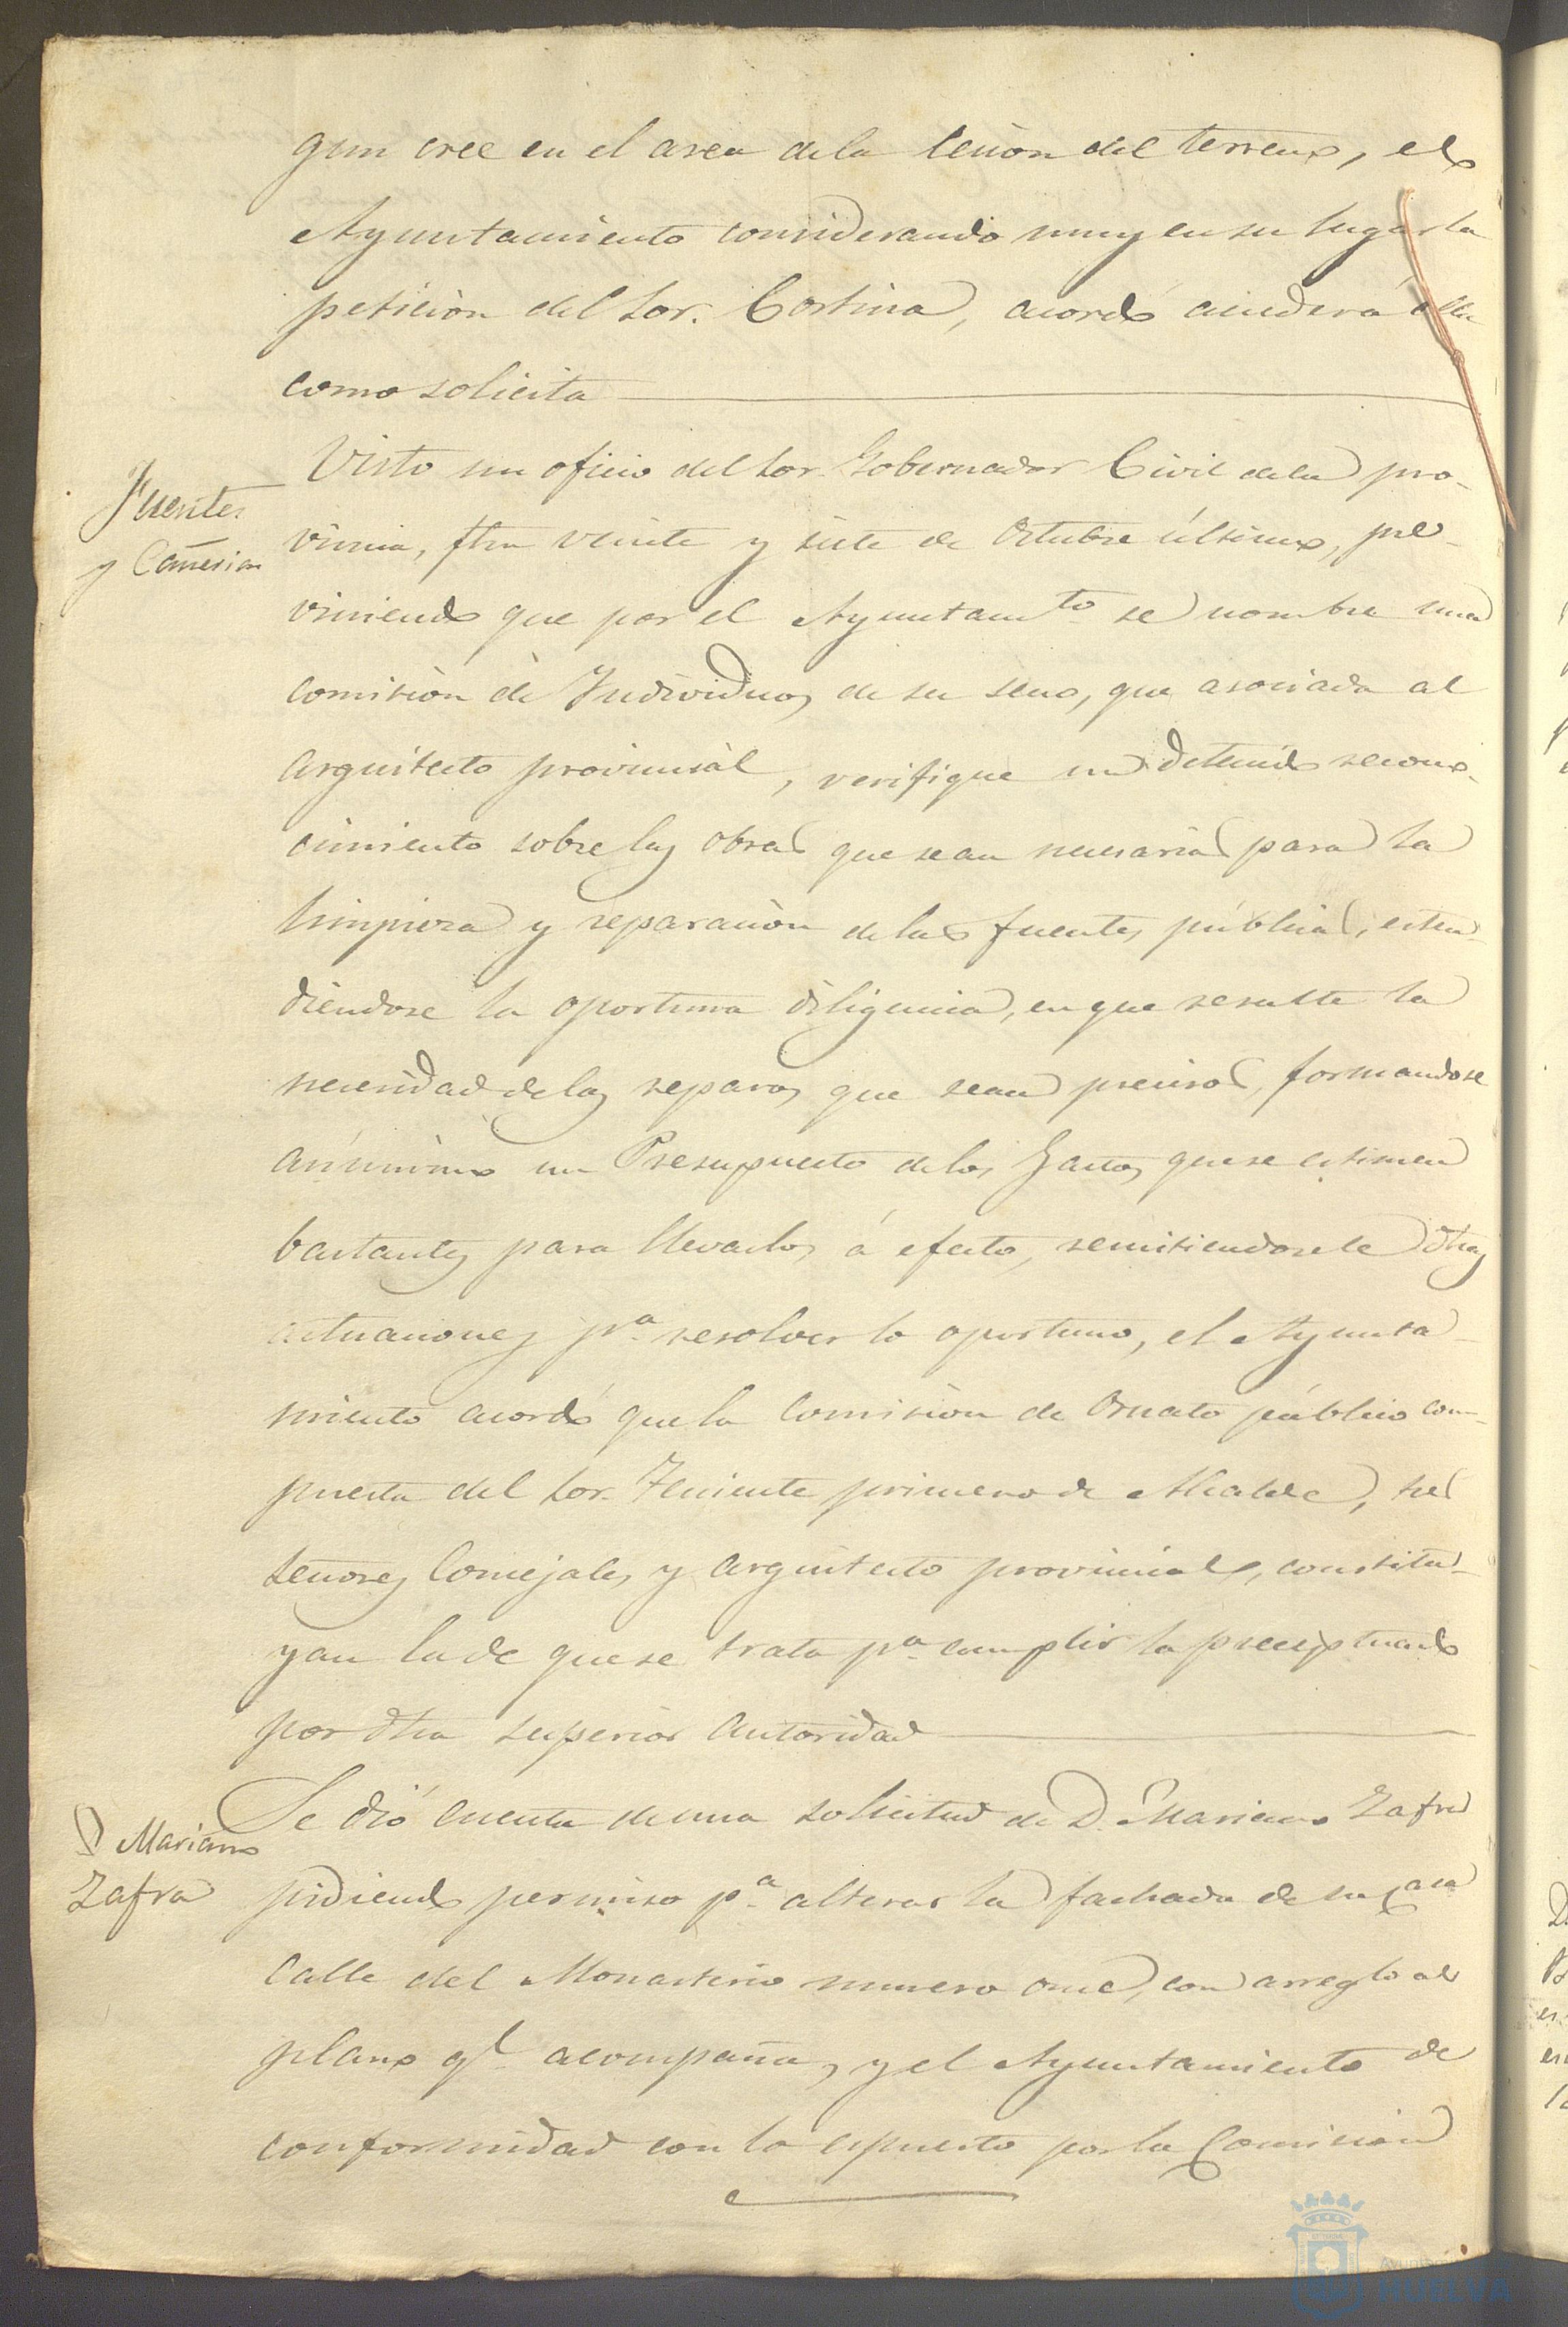 gun cree en el area dela cesion del terreno, el
Ayuntamiento considerando muy en su lugar la
petición del Sor. Cortina, acordó acceder á ella
como solicita
Fuentes
y Cañerias
Visto un oficio del Sor. Gobernador Civil dela pro-
vincia, fha veinte y siete de Octubre último, pre-
viniendo que por el Ayuntamto se nombre una
comisión de Individuos de su seno, que asociada al
Arquitecto provincial, verifique un detenido recono-
cimiento sobre las obras que sean necesarias para la
limpieza y reparación de las fuentes públicas, esten-
diéndose la oportuna diligencia, en que resulte la
necesidad delos reparos que sean precisos, formandose
asímismo un Presupuesto delos Gastos que se estimen
bastantes para llevarlos á efecto, remitiendosele dhas
actuaciones pa. resolver lo oportuno, el Ayunta-
miento acordó que la Comisión de Ornato público com-
puesta del Sor. Teniente primero de Alcalde, tres
señores Concejales y Arquitecto provincial, constitu-
yan la de que se trata pa. cumplir lo preceptuado
por dha superior Autoridad
D Mariano
Zafra
Se dió cuenta de una solicitud de D. Mariano Zafra
pidiendo permiso pa. alterar la fachada de su casa
Calle del Monasterio numero once, con arreglo al
plano qe. acompaña, y el Ayuntamiento de
conformidad con lo espuesto por la Comision
HUELVA